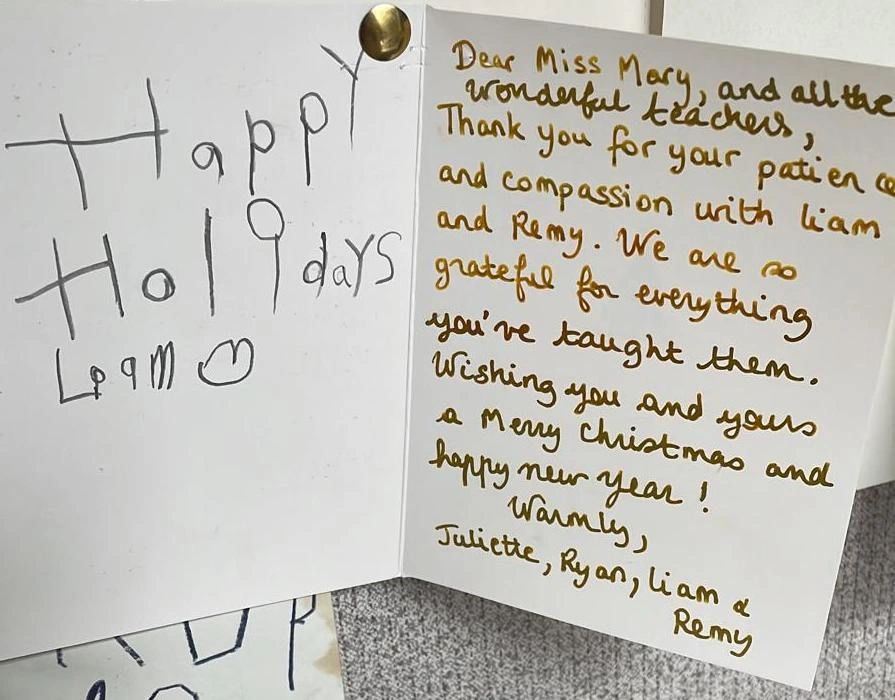 Happy
Holidays
Liam
Dear Miss Mary, and all the
wonderful teachers,
Thank you for your patience
and compassion with Liam
and Remy. We are so
grateful for everything
you've taught them.
Wishing you and yours
a Merry Christmas and
happy new year!
Warmly,
Juliette, Ryan, Liam &
Remy